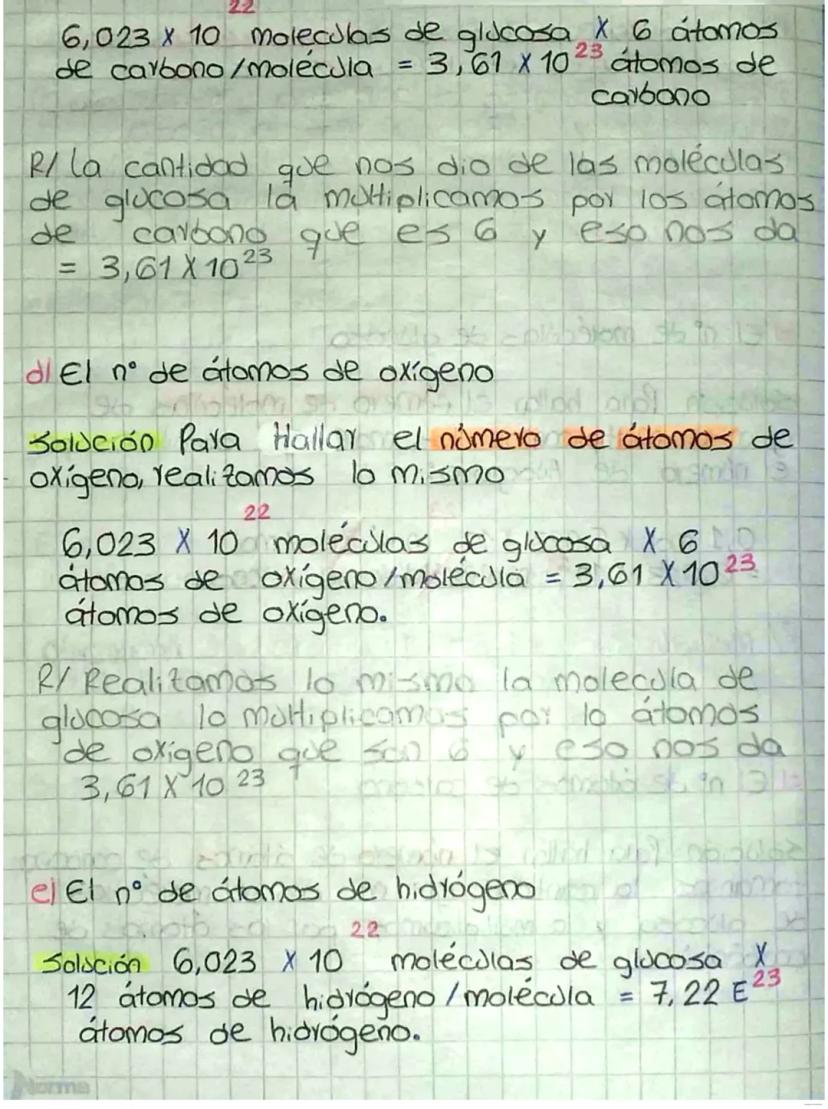 6,023 x 10²² moleculas de glucosa x 6 átomos
de carbono/molécula = 3,61 x 10²³ átomos de
carbono
R/ La cantidad que nos dio de las moléculas
de glucosa la multiplicamos por los átomos
de carbono que es 6 y eso nos da
= 3,61 X 10²³
d) El nº de átomos de oxígeno
Solución Para Hallar el número de átomos de
oxígeno, realizamos lo mismo
6,023 X 10²² moléculas de glucosa X 6
átomos de oxígeno/molécula = 3,61 X 10²³
átomos de oxígeno.
R/ Realizamos lo mismo la molecula de
glucosa lo multiplicamos por lo átomos
de oxigeno que son 6 y eso nos da
3,61 X 10²³
e) El nº de átomos de hidrógeno
Solución 6,023 x 10²² moléculas de glucosa X
12 átomos de hidrógeno/molécula = 7,22 E²³
átomos de hidrógeno.
Norma